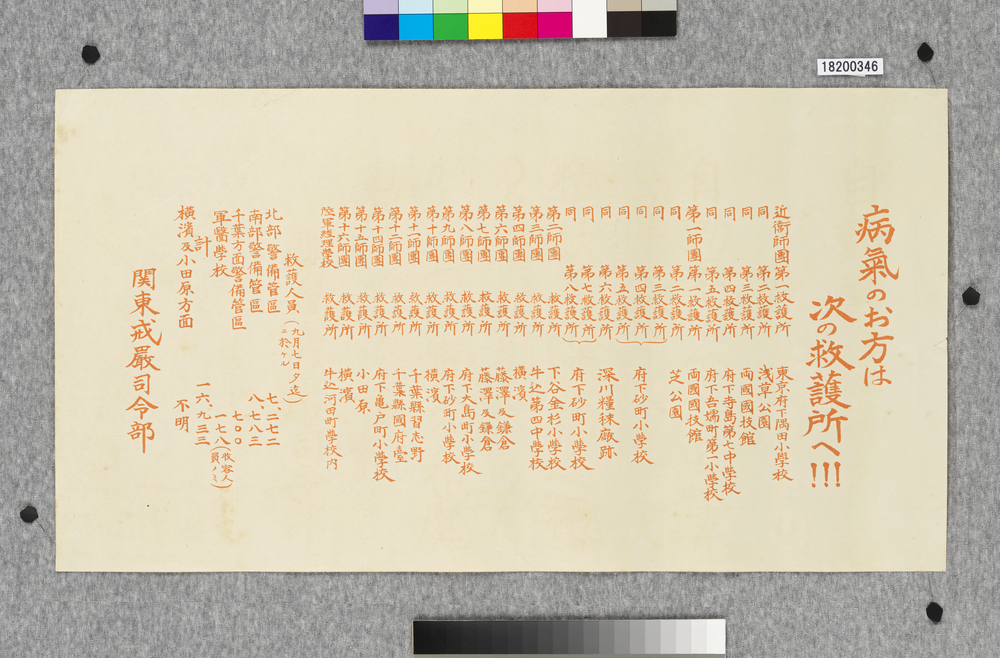 18200346
病氣のお方は
次の救護所へ!!!
近衛師團第一救護所 東京府下隅田小學校
同 第二救護所 浅草公園
同 第三救護所 両國國技館
同 第四救護所 府下寺島第七中学校
同 第五救護所 府下吾嬬町第一小學校
第一師團 第一救護所 両國國技館
同 第二救護所 芝公園
同 第三救護所
同 第四救護所 府下砂町小學校
同 第五救護所
同 第六救護所 深川糧秣廠跡
同 第七救護所 府下砂町小學校
同 第八救護所
第二師團 救護所 下谷金杉小学校
第三師團 救護所 牛込第四中学校
第四師團 救護所 橫濱
第六師團 救護所 藤澤及鎌倉
第七師團 救護所 藤澤及鎌倉
第八師團 救護所 府下大島町小學校
第九師團 救護所 府下砂町小學校
第十師團 救護所 橫濱
第十一師團 救護所 千葉縣習志野
第十二師團 救護所 千葉縣國府臺
第十四師團 救護所 府下亀戸町小學校
第十五師團 救護所 小田原
第十六師團 救護所 橫濱
陸軍經理學校 救護所 牛込河田町學校內
救護人員(九月七日夕迄ニ於ケル)
北部警備管區 七、二七二
南部警備管區 八、七八三
千葉方面警備管區 七〇〇
軍醫學校 一七八(收容人員ノミ)
計 一六、九三三
橫濱及小田原方面 不明
関東戒嚴司令部